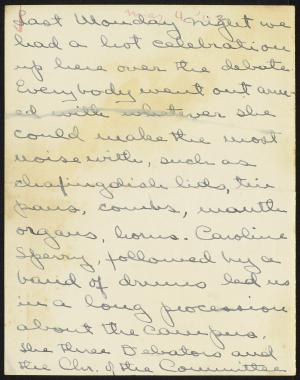 Last Monday night we
had a hot celebration
up here over the debate.
Everybody went out arm-
ed with whatever she
could make the most
noise with, such as
chafingdish lids, tin
pans, combs, mouth
organs, horns. Caroline
Sperry, followed by a
band of drums led us
in a long procession
about the campus.
The three Debators and
the Chr. of the Committee